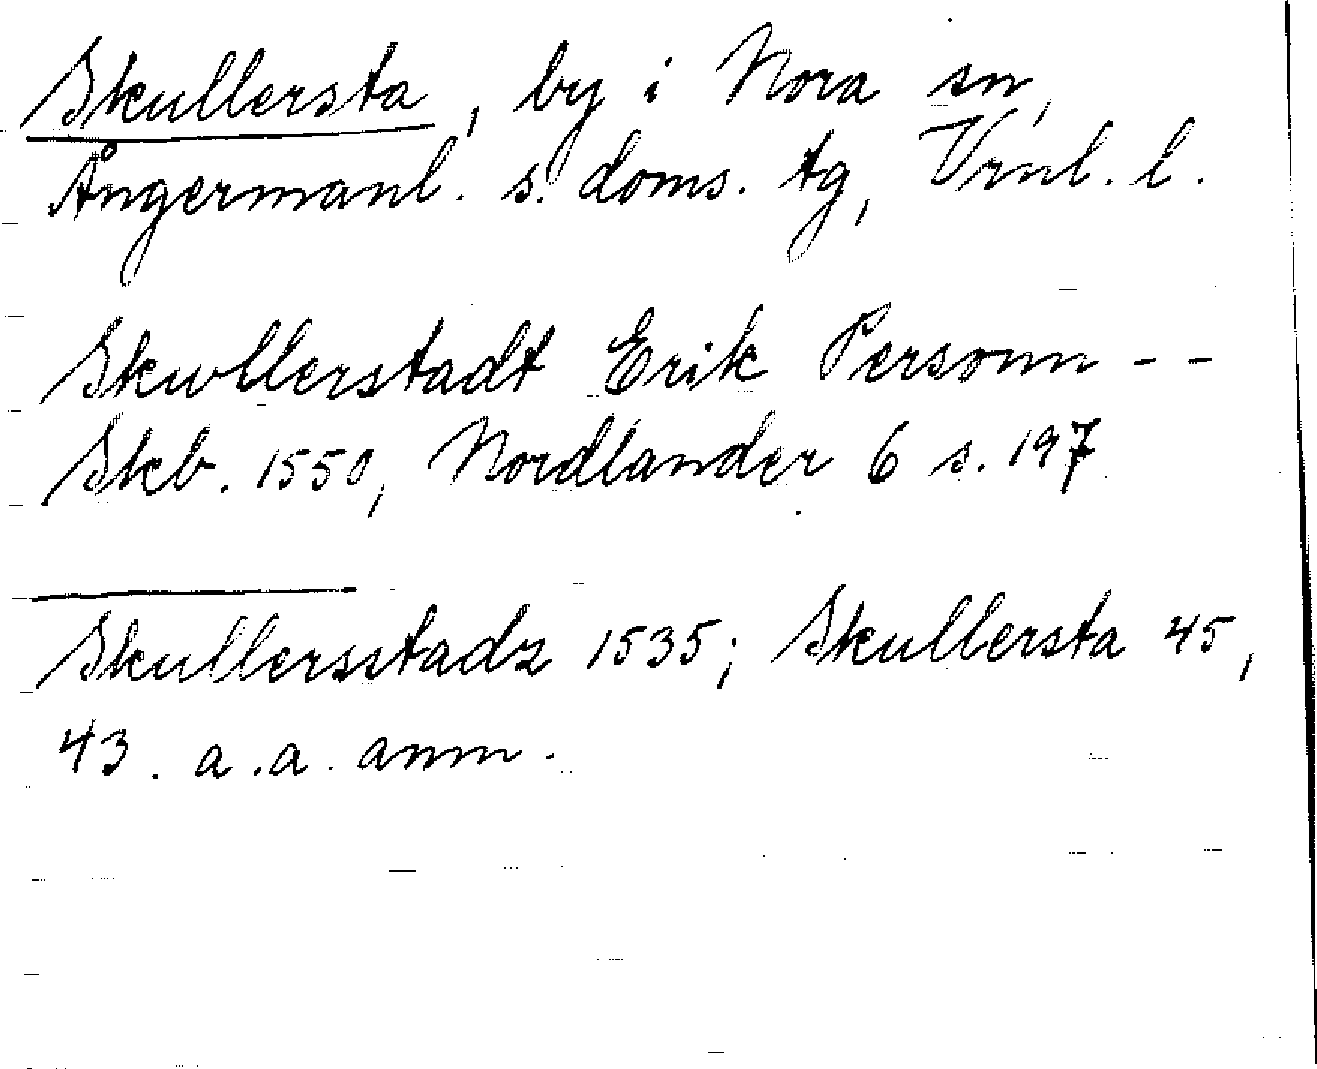 Skullersta, by i Nora sn,
Ångermanl. s. doms. tg, Vrnl. l.
Skwllerstadt Erik Personn - -
Skb. 1550, Nordlander 6 s. 197
Skullersstadz 1535; Skullersta 45,
43. a.a. anm.